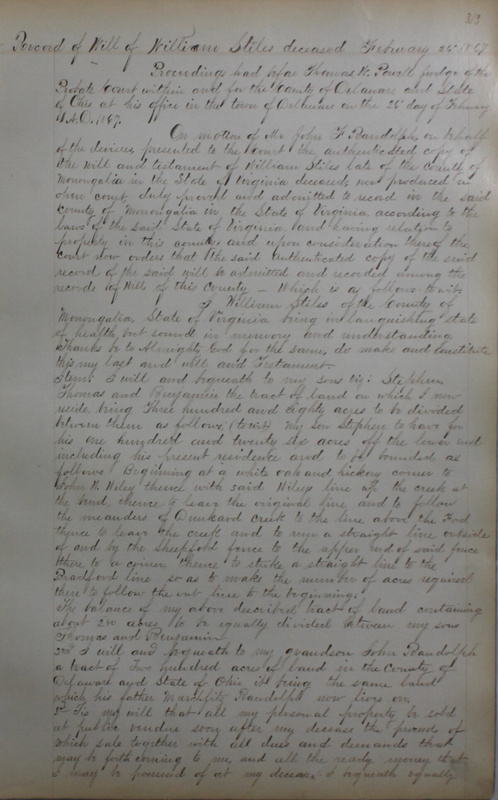 313
Record of Will of William Stiles deceased February 24th 1847
Proceedings had before Thomas W. Powell judge of the
Probate Court within and for the County of Delaware and State
of Ohio at his office in the town of Delaware on the 24 day of February
A.D. 1847.
On motion of Mr John F. Randolph on behalf
of the devisees, presented to the Court the authenticated copy of
the will and testament of William Stiles late of the County of
Monongalia in the State of Virginia deceased, now produced in
open court, duly proved and admitted to record in the said
County of Monongalia in the State of Virginia according to the
laws of the said State of Virginia and having relation to
property in this county, and upon consideration thereof the
Court now orders that the said authenticated copy of the said
record of the said will be admitted and recorded among the
records of Wills of this County — Which is as follows to wit:
I William Stiles of the County of
Monongalia, State of Virginia being in languishing state
of health but sound in memory and understanding
Thanks be to Almighty God for the same, do make and constitute
this my last and Will and Testament.
Item. I will and bequeath to my sons viz: Stephen
Thomas and Benjamin the tract of land on which I now
reside, being Three hundred and eighty acres to be divided
between them as follows, (to wit) My son Stephen to have for
his one hundred and twenty six acres off the lower end
including his present residence and to be bounded as
follows: Beginning at a white oak and hickory corner to
John W. Wiley thence with said Wileys line up the creek at
the bend, thence to leave the original line and to follow
the meanders of Dunkard creek to the line above the Ford
thence to leave the creek and to run a straight line outside
of and by the Sheepfold fence to the upper end of said fence
there to a corner, thence to strike a straight line to the
Bradford line so as to make the number of acres required
then to follow the out line to the beginning.
The balance of my above described tract of land containing
about 250 acres to be equally divided between my sons
Thomas and Benjamin
2nd I will and bequeath to my grandson John Randolph
a tract of Two hundred acres of land in the County of
Delaware and State of Ohio it being the same land
which his father Randolph now lives on
3d Tis my will that all my personal property be sold
at public vendue soon after my decease the proceeds of
which sale together with all dues and demands that
may be forthcoming to me, and all the ready money that
I may be possessed of at my decease I bequeath equally